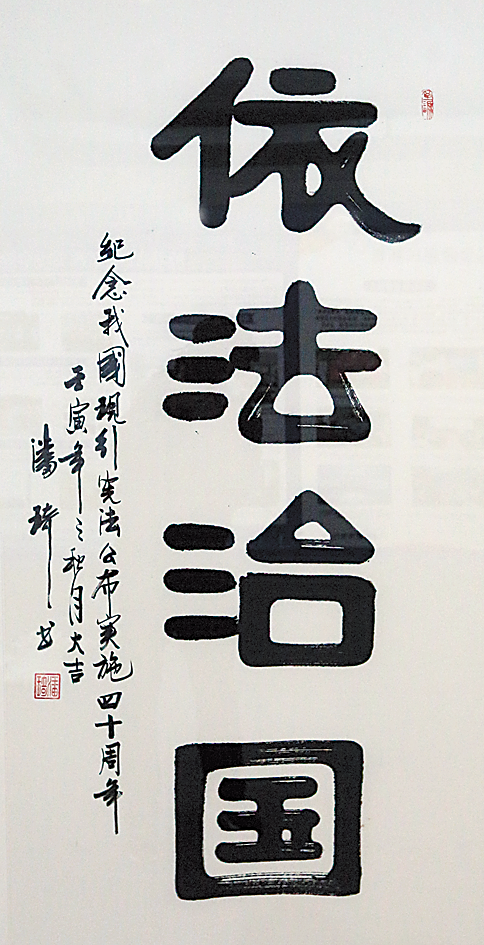 依法治国
紀念我國現行宪法公布实施四十周年
壬寅年之秋月大吉
潘琦书